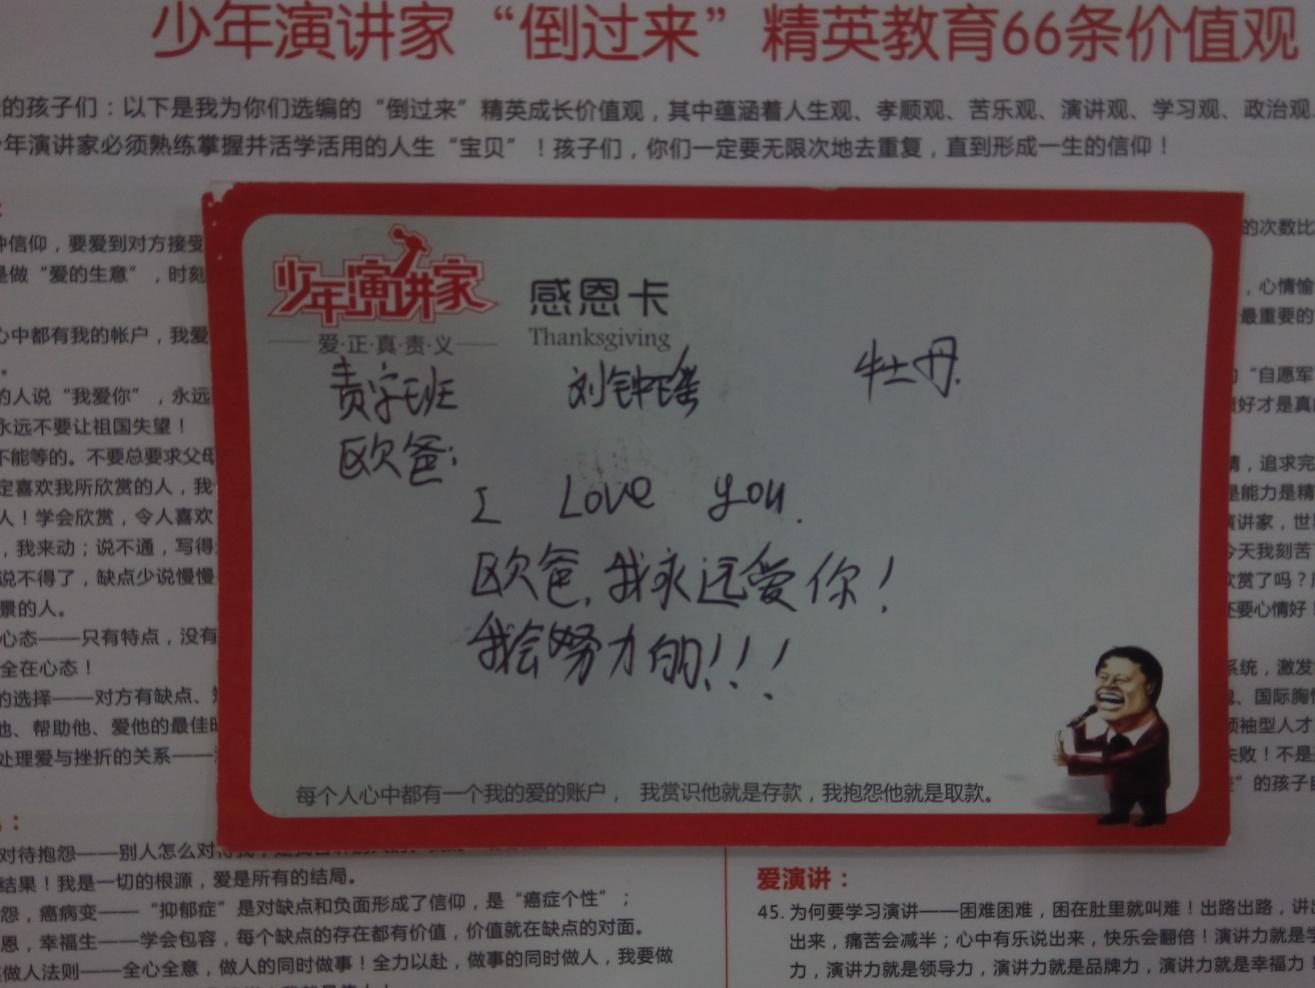 少年演讲家“倒过来”精英教育66条价值观
的孩子们：以下是我为你们选编的“倒过来”精英成长价值观，其中蕴涵着人生观、孝顺观、苦乐观、演讲观、学习观、政治观
年演讲家必须熟练掌握并活学活用的人生“宝贝”！孩子们，你们一定要无限次地去重复，直到形成一生的信仰！
信仰，要爱到对方接受
是做“爱的生意”，时刻
心中都有我的帐户，我爱
的人说“我爱你”，永远
永远不要让祖国失望！
不能等的。不要总要求父母
定喜欢我所欣赏的人，我
人！学会欣赏，令人喜欢
，我来动；说不通，写得
说不得了，缺点少说慢慢
景的人。
心态——只有特点，没有
全在心态！
的选择——对方有缺点、
他、帮助他、爱他的最佳
处理爱与挫折的关系——
少年演讲家
爱·正·真·责·义
感恩卡
Thanksgiving
责字班 刘钟瑶 牡丹.
欧爸：
I Love you.
欧爸，我永远爱你！
我会努力的！！！
每个人心中都有一个我的爱的账户， 我赏识他就是存款，我抱怨他就是取款。
的次数比
，心情愉
最重要的
“自愿军
好才是真
情，追求完
是能力是精
演讲家，世
今天我刻苦
欣赏了吗？
还要心情好！
系统，激发
、国际胸
领袖型人才
失败！不是
”的孩子
对待抱怨——别人怎么对
结果！我是一切的根源，爱是所有的结局。
怨，癌病变——“抑郁症”是对缺点和负面形成了信仰，是“癌症个性”；
恩，幸福生——学会包容，每个缺点的存在都有价值，价值就在缺点的对面。
做人法则——全心全意，做人的同时做事！全力以赴，做事的同时做人，我要做
爱演讲：
45. 为何要学习演讲——困难困难，困在肚里就叫难！出路出路，讲
出来，痛苦会减半；心中有乐说出来，快乐会翻倍！演讲力就是
力，演讲力就是领导力，演讲力就是品牌力，演讲力就是幸福力！